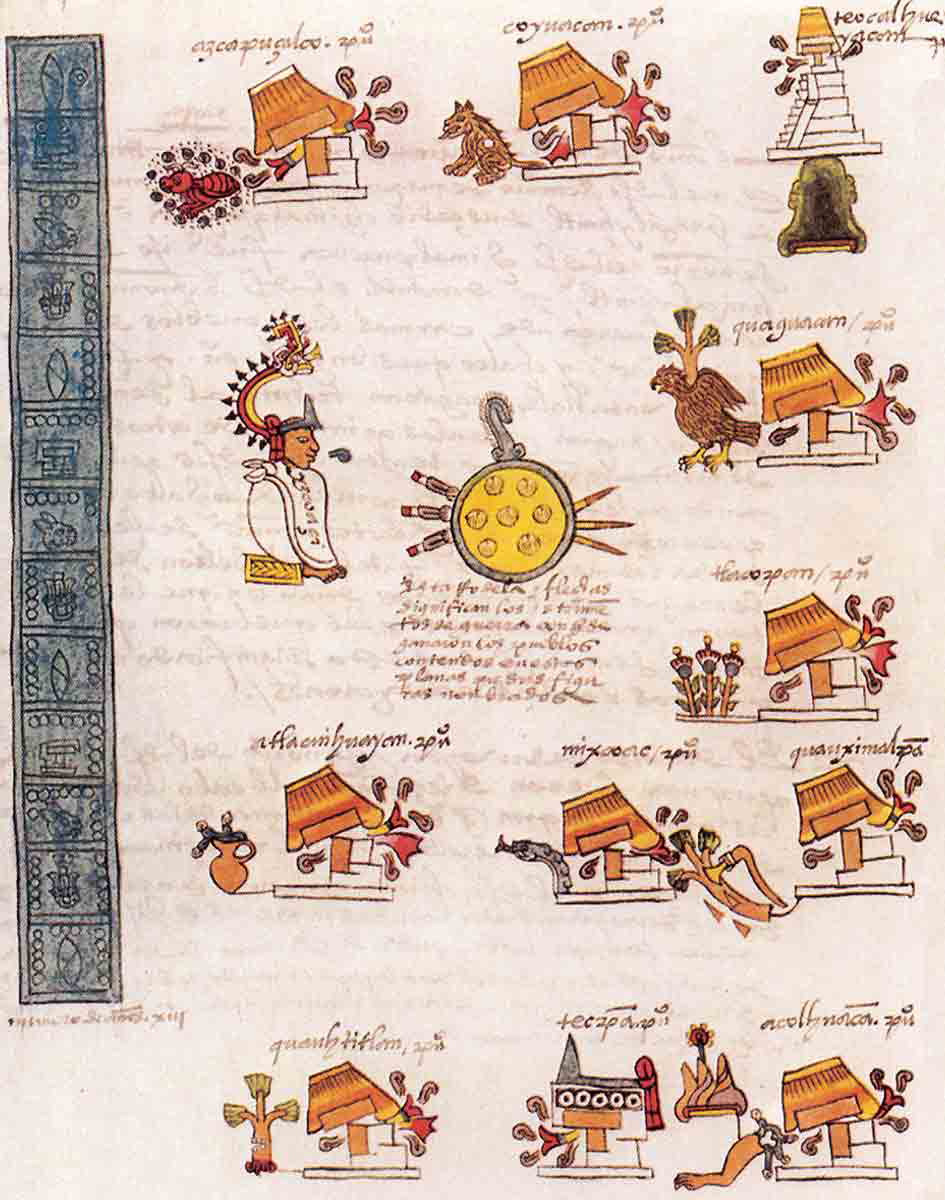 azcapuçalco. pu°
coyuacan. pu°
teocalhue
yacan
quaguacan / pu°
ytzcoaçi
Esta Rodela y flechas
significan los instrume
tos de guerra con q̃ se
ganaron los pueblos
contenidos en estas
planas por sus figu
ras nonbrados
tlacopan / pu°
atlacuihuayan. pu°
mixcoac / pu°
quauximalpã
numero de años. xiii
quauhtitlan / pu°
tecpã. pu°
acolhuacã. pu°